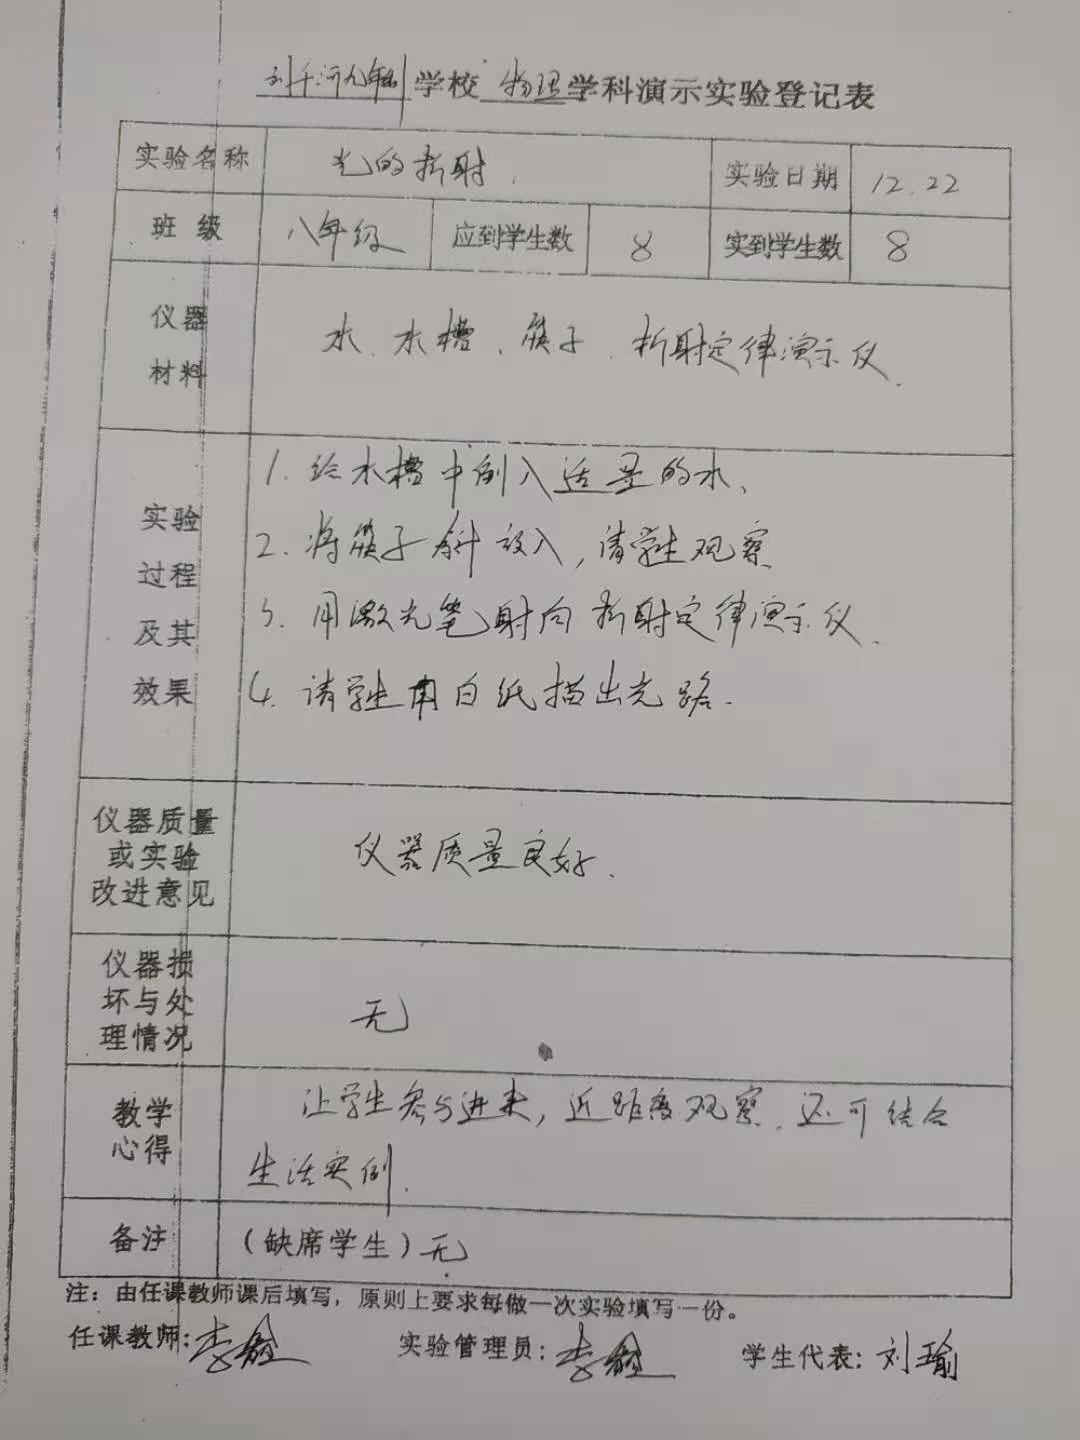 刘千河九年制学校 物理学科演示实验登记表
实验名称 光的折射. 实验日期 12.22
班级 八年级 应到学生数 8 实到学生数 8
仪器
材料
水、水槽、筷子、折射定律演示仪.
实验
过程
及其
效果
1. 给水槽中倒入适量的水、
2. 将筷子斜放入,请学生观察
3. 用激光笔射向折射定律演示仪.
4. 请学生用白纸描出光路.
仪器质量
或实验
改进意见
仪器质量良好.
仪器损
坏与处
理情况
无
教学
心得
让学生参与进来,近距离观察.还可结合
生活实例.
备注 (缺席学生)无
注:由任课教师课后填写,原则上要求每做一次实验填写一份。
任课教师:李 实验管理员:李 学生代表:刘瑜